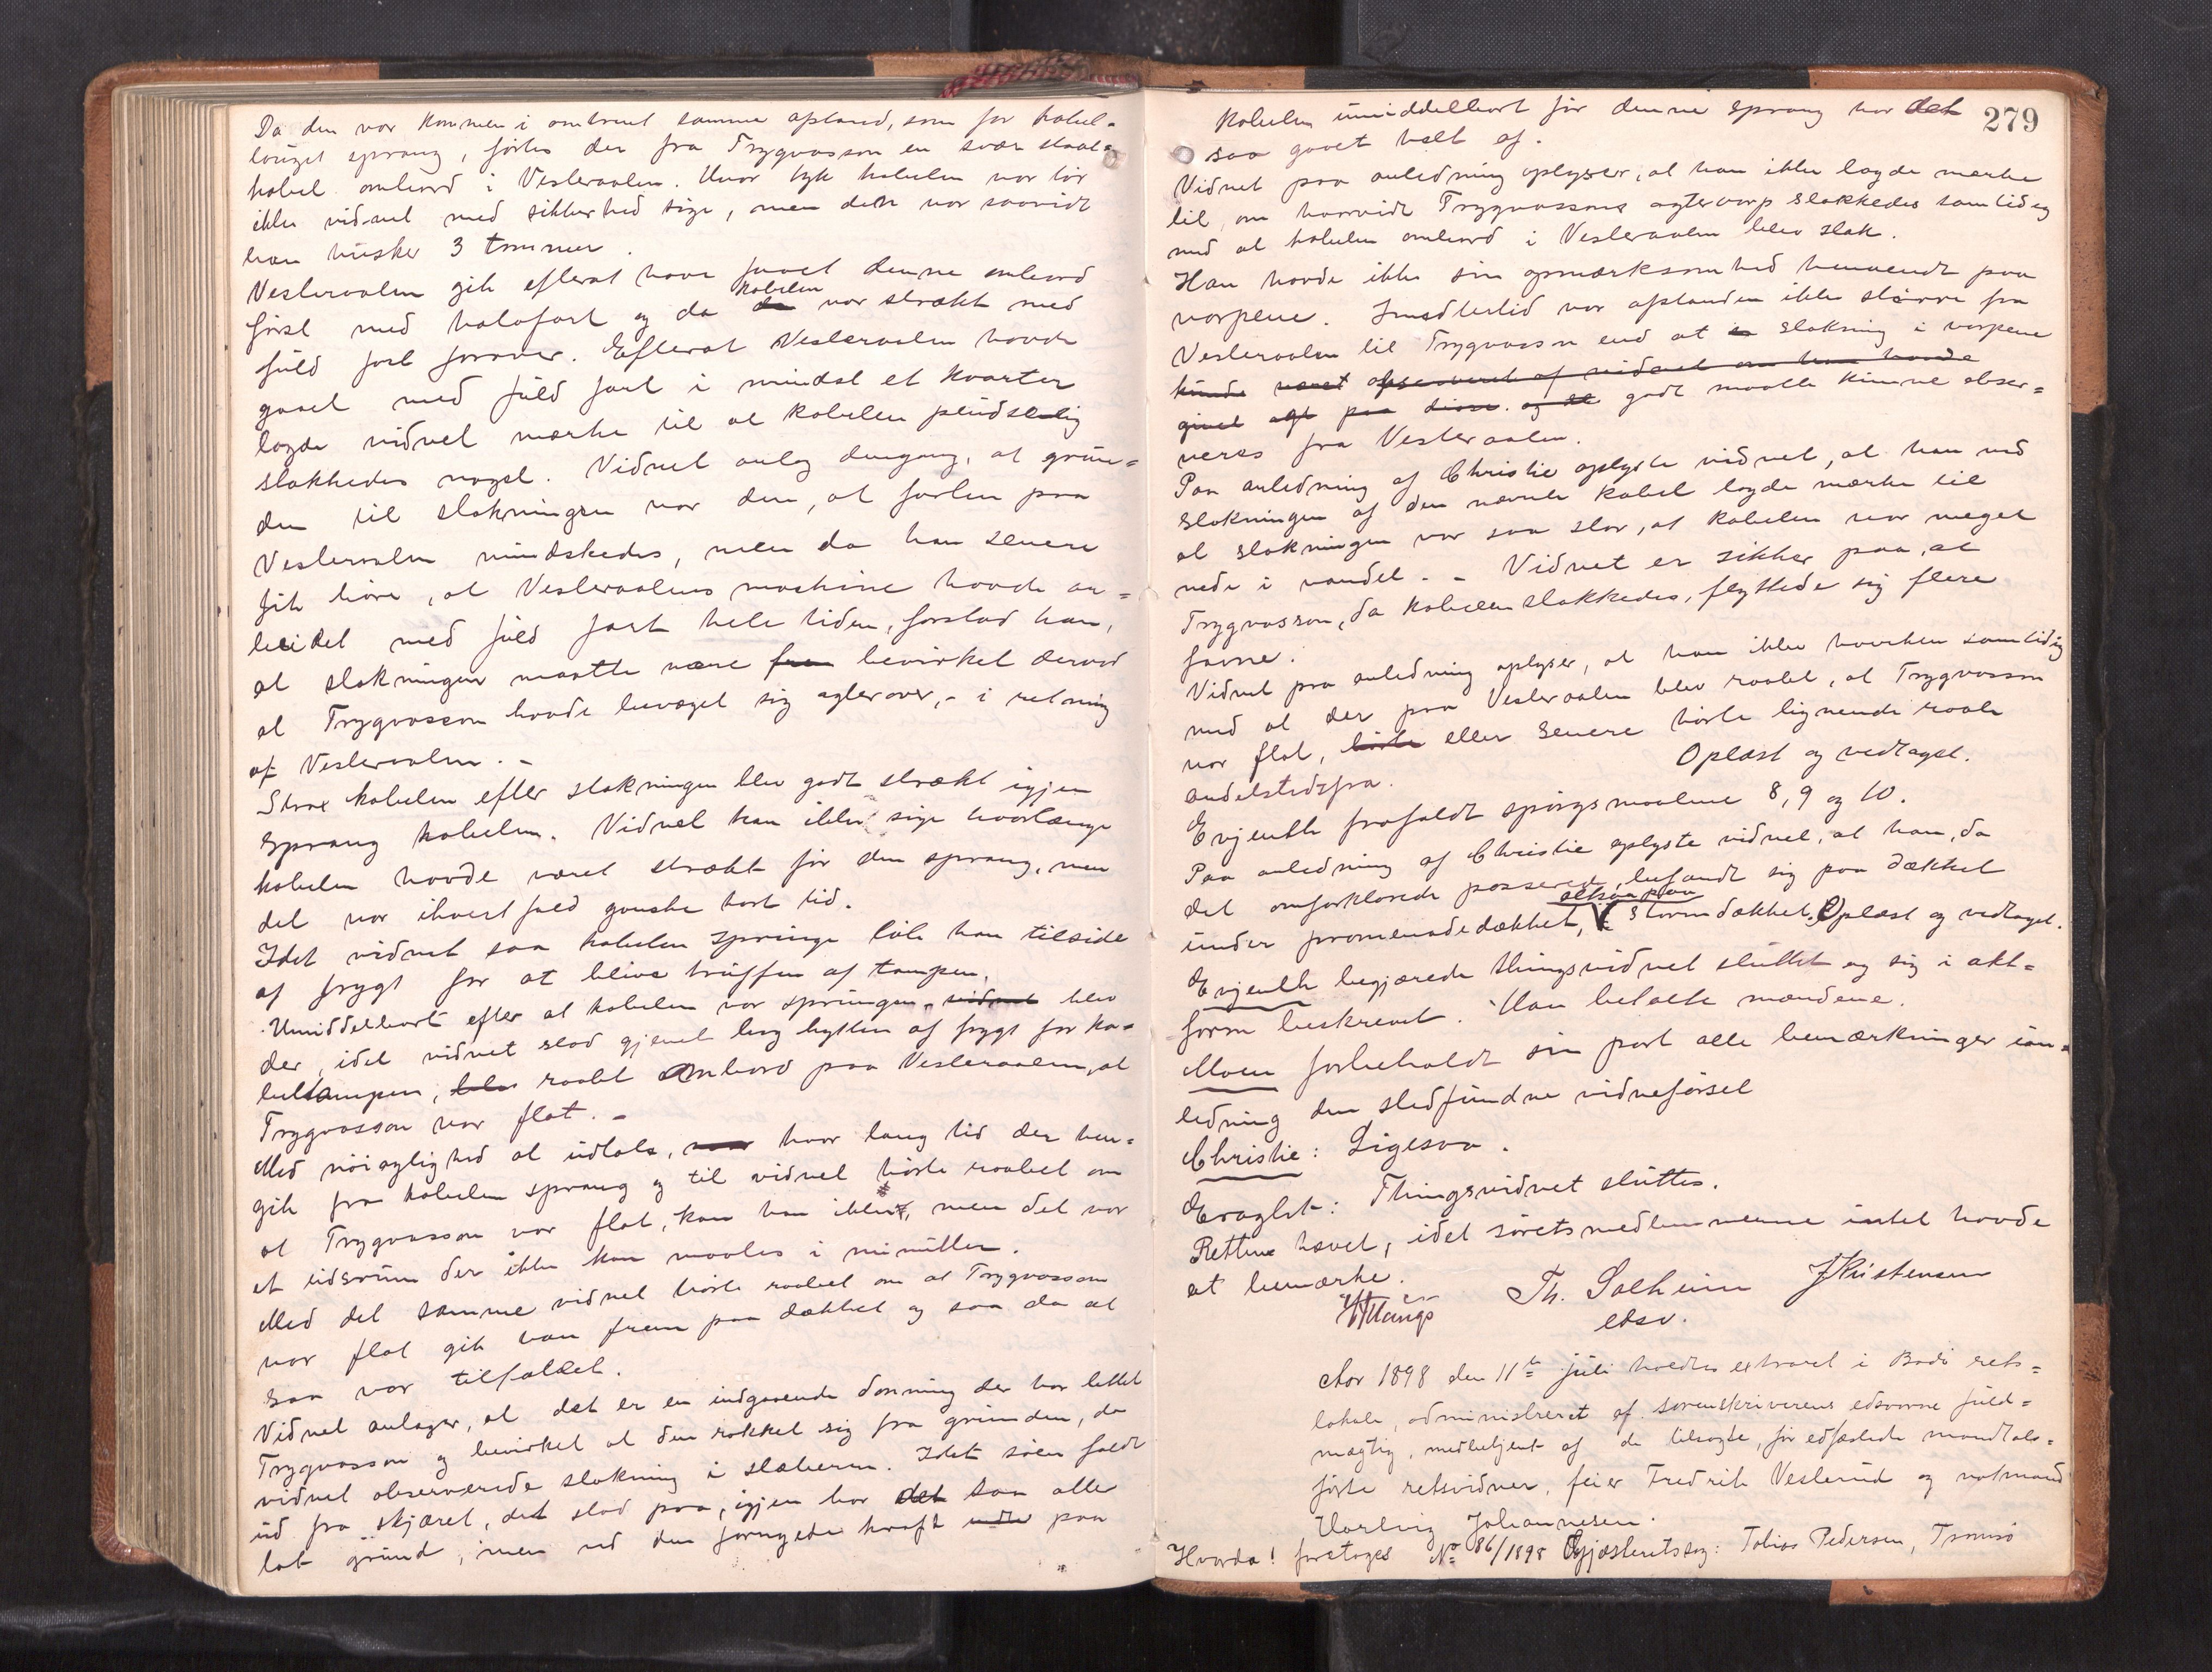 Da den var kommen i omtrent samme afstand, som før kabel-
touget sprang, førtes der fra Trygvasson en svær staal-
kabel ombord i Vesteraalen. Hvor tyk kabelen var tør
ikke vidnet med sikkerhed sige, men den var saavidt
han husker 3 tommer.
Vesteraalen gik efterat have faaet denne ombord
først med halvfart og da kabelen var strækt med
fuld fart forover. Efterat Vesteraalen havde
gaaet med fuld fart i mindst et kvarter
lagde vidnet mærke til at kabelen pludselig
slakkedes noget. Vidnet antog dengang, at grun-
den til slakningen var den, at farten paa
Vesteraalen mindskedes, men da han senere
fik høre, at Vesteraalens maskine havde ar-
beidet med fuld fart hele tiden, forstod han,
at slakningen maatte være bevirket derved
at Trygvasson havde bevæget sig agterover, - i retning
af Vesteraalen. -
Strax kabelen efter slakningen blev godt strækt igjen
sprang kabelen. Vidnet kan ikke sige hvorlænge
kabelen havde været strækt før den sprang, men
det var ihvertfald ganske kort tid.
Idet vidnet saa kabelen springe løb han tilside
af frygt for at blive truffen af tampen.
Umiddelbart efter at kabelen var sprungen, vidnet blev
der, idet vidnet stod gjemt bag hytten af frygt for ka-
beltampen, blev raabt ombord paa Vesteraalen, at
Trygvasson var flot. -
Med nøiagtighed at udtale, hvor lang tid der hen-
gik fra kabelen sprang og til vidnet hørte raabet om
at Trygvasson var flot, kan han ikke, men det var
et tidsrum der ikke kan maales i minutter.
Med det samme vidnet hørte raabet om at Trygvasson
var flot gik han frem paa dækket og saa da at
saa var tilfældet.
Vidnet antager, at det er en indgaaende dønning der har lettet
Trygvasson og bevirket at den rokket sig fra grunden, da
vidnet observerede slakning i slæberen. Idet søen faldt
ud fra skjæret, det stod paa, igjen har det saa atter
tat grund, men ved den fornyede kraft paa
279
kabelen umiddelbart før denne sprang har det
saa gaaet helt af.
Vidnet paa anledning oplyser, at han ikke lagde mærke
til, om hvorvidt Trygvassons agtervarp slakkedes samtidig
med at kabelen ombord i Vesteraalen blev slak.
Han havde ikke sin opmærksomhed henvendt paa
varpene. Imidlertid var afstanden ikke større fra
Vesteraalen til Trygvasson end at en slakning i varpene
kunde været observeret af vidnet om han havde
givet agt paa disse. og de godt maatte kunne obser-
veres fra Vesteraalen.
Paa anledning af Christie oplyste vidnet, at han ved
slakningen af den nævnte kabel lagde mærke til
at slakningen var saa stor, at kabelen var meget
nede i vandet. - Vidnet er sikker paa, at
Trygvasson, da kabelen slakkedes, flyttede sig flere
favne.
Vidnet paa anledning oplyser, at han ikke hverken samtidig
med at der paa Vesteraalen blev raabt, at Trygvasson
var flot, hørte eller senere hørte lignende raab
andetstedsfra. Oplæst og vedtaget.
Evjenth frafaldt spørgsmaalene 8, 9 og 10.
Paa anledning af Christie oplyste vidnet, at han, da
det omforklarede passerede, befandt sig paa dækket
under promenadedækket, altsaa paa stormdækket. Oplæst og vedtaget.
Evjenth begjærede thingsvidnet sluttet og sig i akt-
form beskrevet. Han betalte mændene.
Moen forbeholdt sin part alle bemærkninger ian-
ledning den stedfundne vidneførsel
Christie: Ligesaa.
Eragtet: Thingsvidnet sluttes.
Retten hævet, idet søretsmedlemmerne intet havde
at bemærke.
Th. Solheim JKristensen
edsv.
Aar 1898 den 11te juli holdtes extraret i Bodø rets-
lokale, administreret af sorenskriverens edsvorne fuld-
mægtig, medbetjent af de tilsagte, før edfæstede mandtals-
førte retsvidner, feier Fredrik Vesterud og notmand
Hartvig Johannesen.
Hvorda! foretages No 86/1898 Gjæsteretssag: Tobias Pedersen, Tromsø